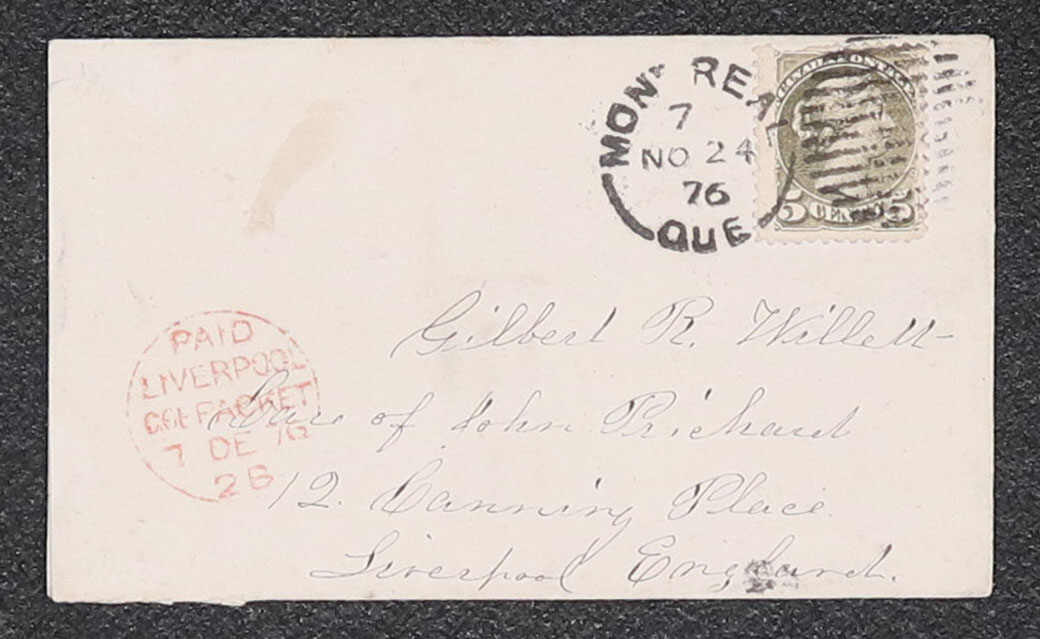 MONTREAL
7
NO 24
76
QUE
CANADA POSTAGE
5 CENTS 5
Gilbert R. Willett
Care of John Prichard
12. Canning Place
Liverpool England.
PAID
LIVERPOOL
COL PACKET
7 DE 76
2B